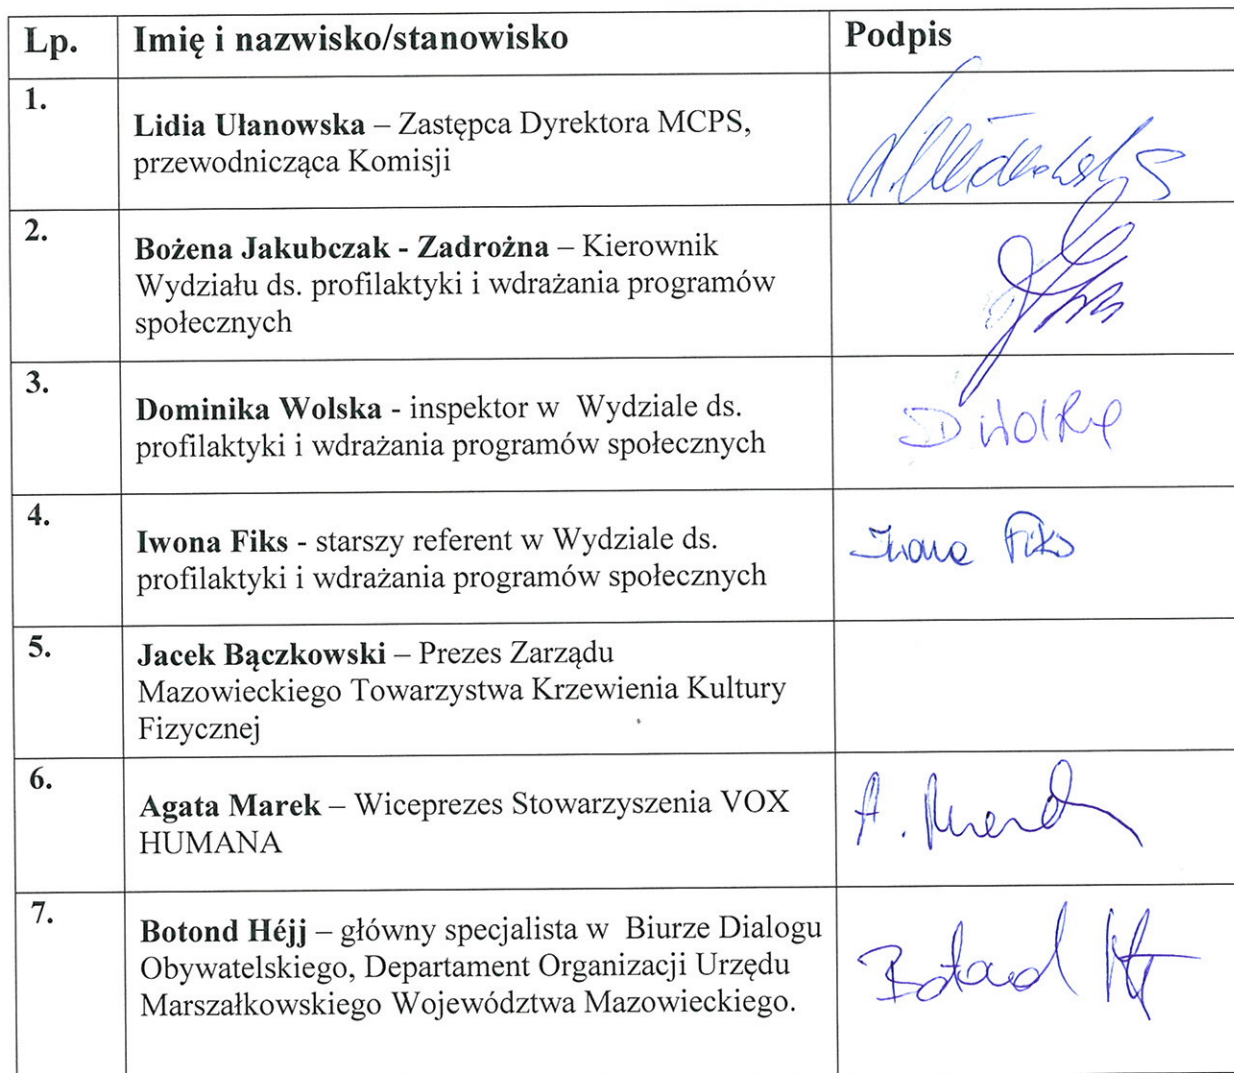 Lp. Imię i nazwisko/stanowisko Podpis
1.
Lidia Ułanowska – Zastępca Dyrektora MCPS,
przewodnicząca Komisji
2.
Bożena Jakubczak - Zadrożna – Kierownik
Wydziału ds. profilaktyki i wdrażania programów
społecznych
3.
Dominika Wolska - inspektor w Wydziale ds.
profilaktyki i wdrażania programów społecznych
D Wolska
4.
Iwona Fiks - starszy referent w Wydziale ds.
profilaktyki i wdrażania programów społecznych
Iwona Fiks
5.
Jacek Bączkowski – Prezes Zarządu
Mazowieckiego Towarzystwa Krzewienia Kultury
Fizycznej
6.
Agata Marek – Wiceprezes Stowarzyszenia VOX
HUMANA
A. Marek
7.
Botond Héjj – główny specjalista w Biurze Dialogu
Obywatelskiego, Departament Organizacji Urzędu
Marszałkowskiego Województwa Mazowieckiego.
Botond